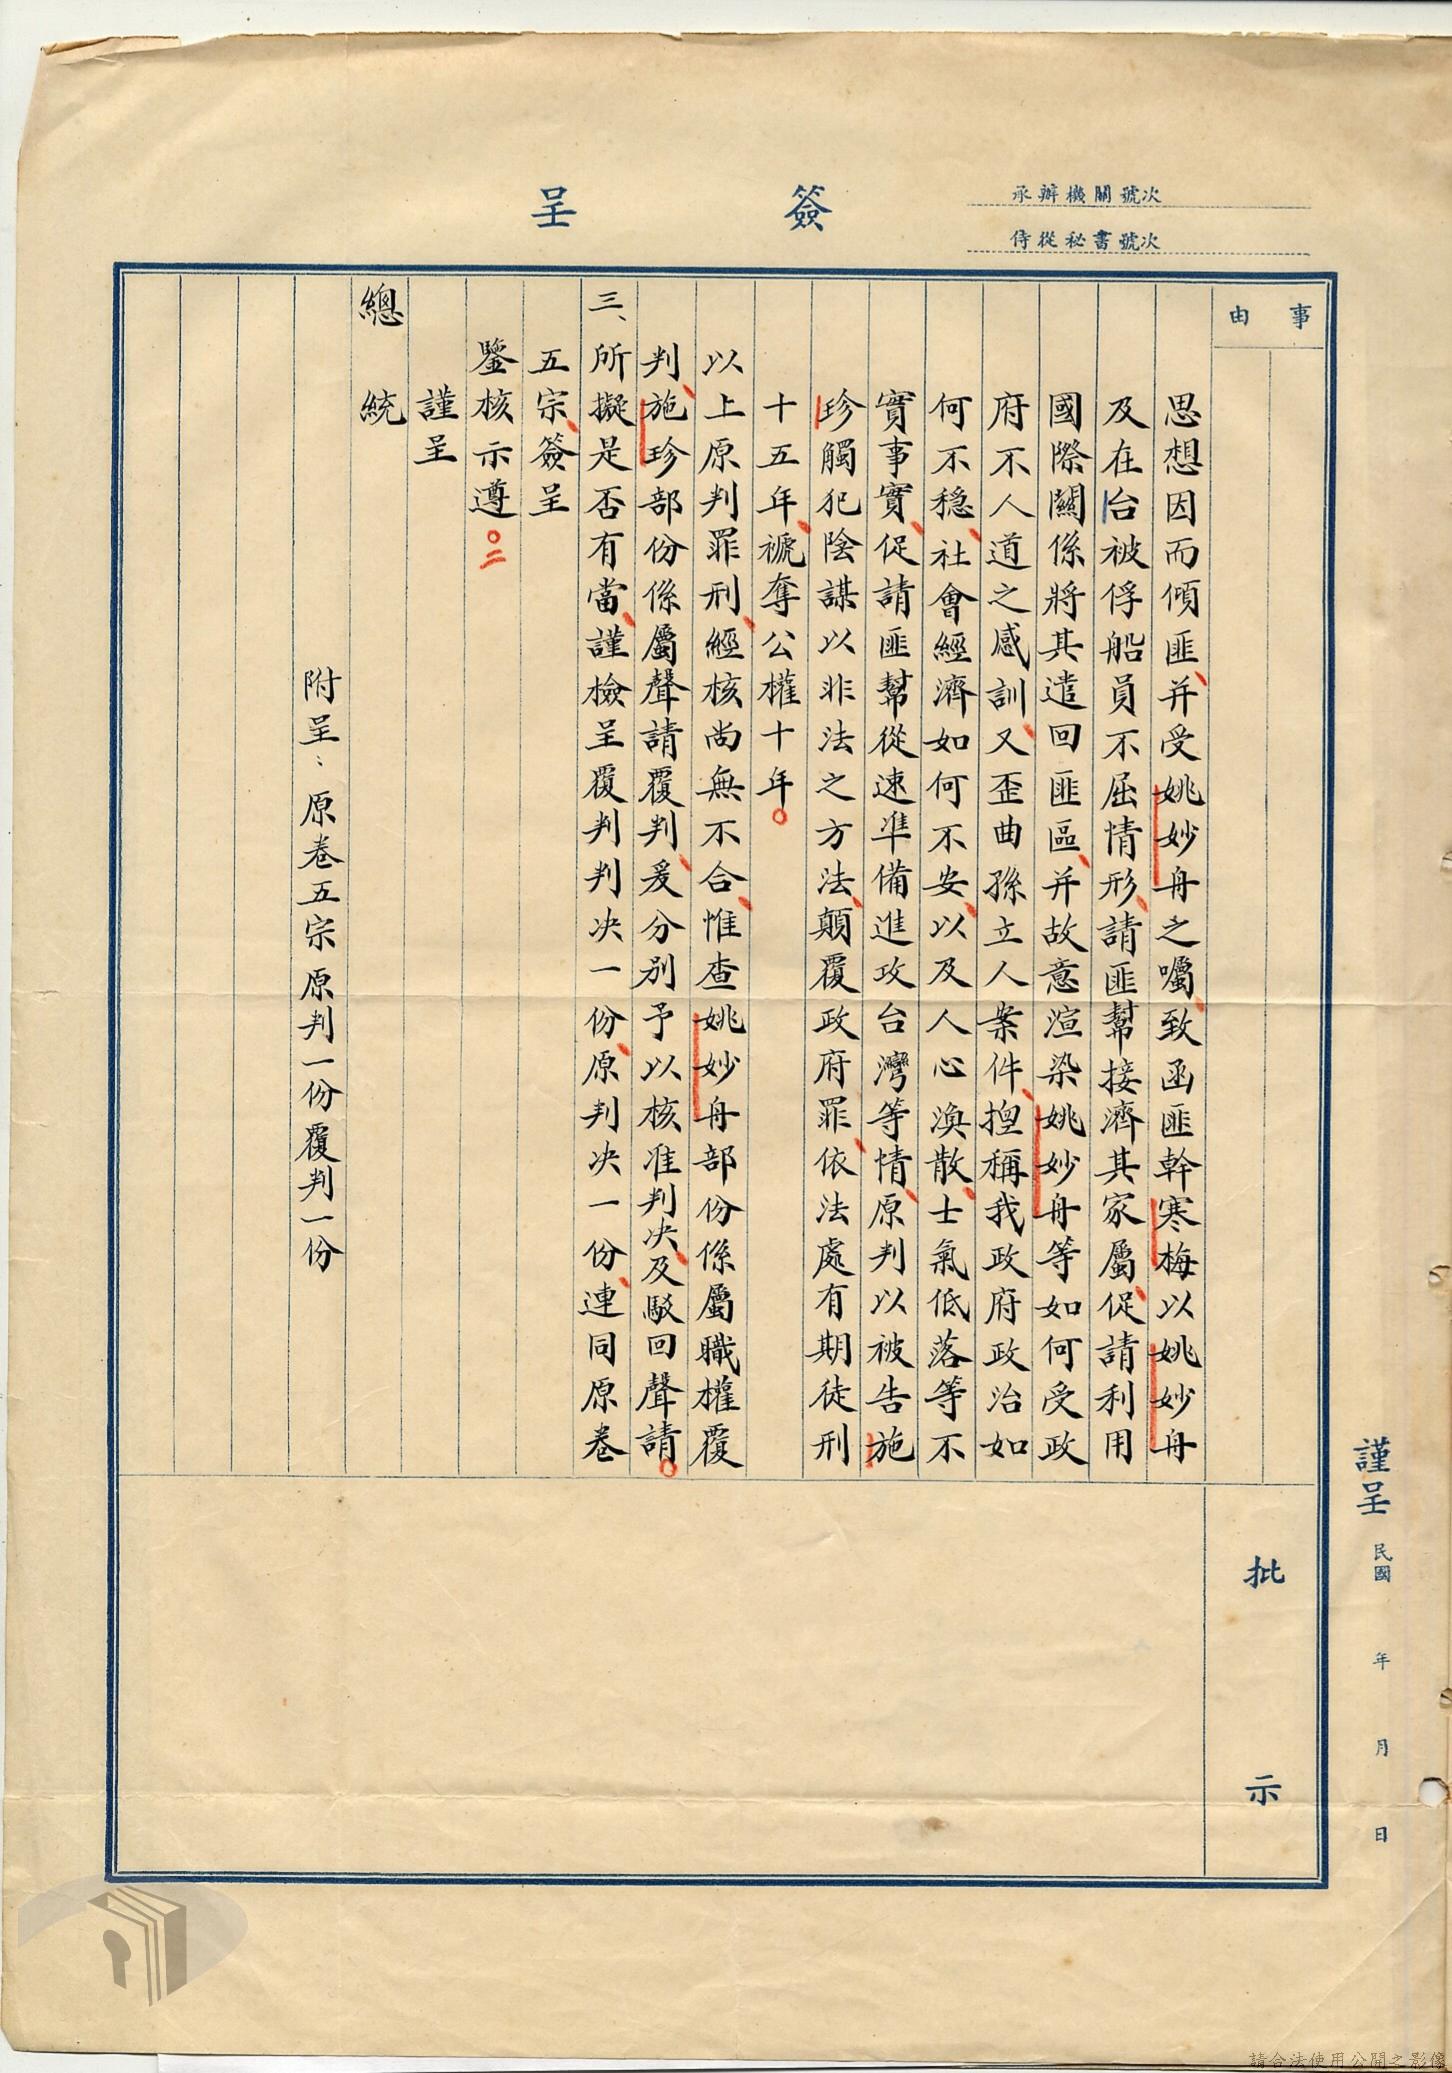 簽呈
承辦機關號次
侍從秘書號次
事由
思想因而傾匪并受姚妙舟之囑致函匪幹寒梅以姚妙舟
及在台被俘船員不屈情形請匪幫接濟其家屬促請利用
國際關係將其遣回匪區并故意渲染姚妙舟等如何受政
府不人道之感訓又歪曲孫立人案件揑稱我政府政治如
何不穩社會經濟如何不安以及人心渙散士氣低落等不
實事實促請匪幫從速準備進攻台灣等情原判以被告施
珍觸犯陰謀以非法之方法顛覆政府罪依法處有期徒刑
十五年褫奪公權十年。
以上原判罪刑經核尚無不合惟查姚妙舟部份係屬職權覆
判施珍部份係屬聲請覆判爰分別予以核准判决及駁回聲請。
三、所擬是否有當謹檢呈覆判判决一份原判决一份連同原卷
五宗簽呈
鑒核示遵。
謹呈
總統
附呈：原卷五宗原判一份覆判一份
批示
謹呈 民國 年 月 日
請合法使用公開之影像